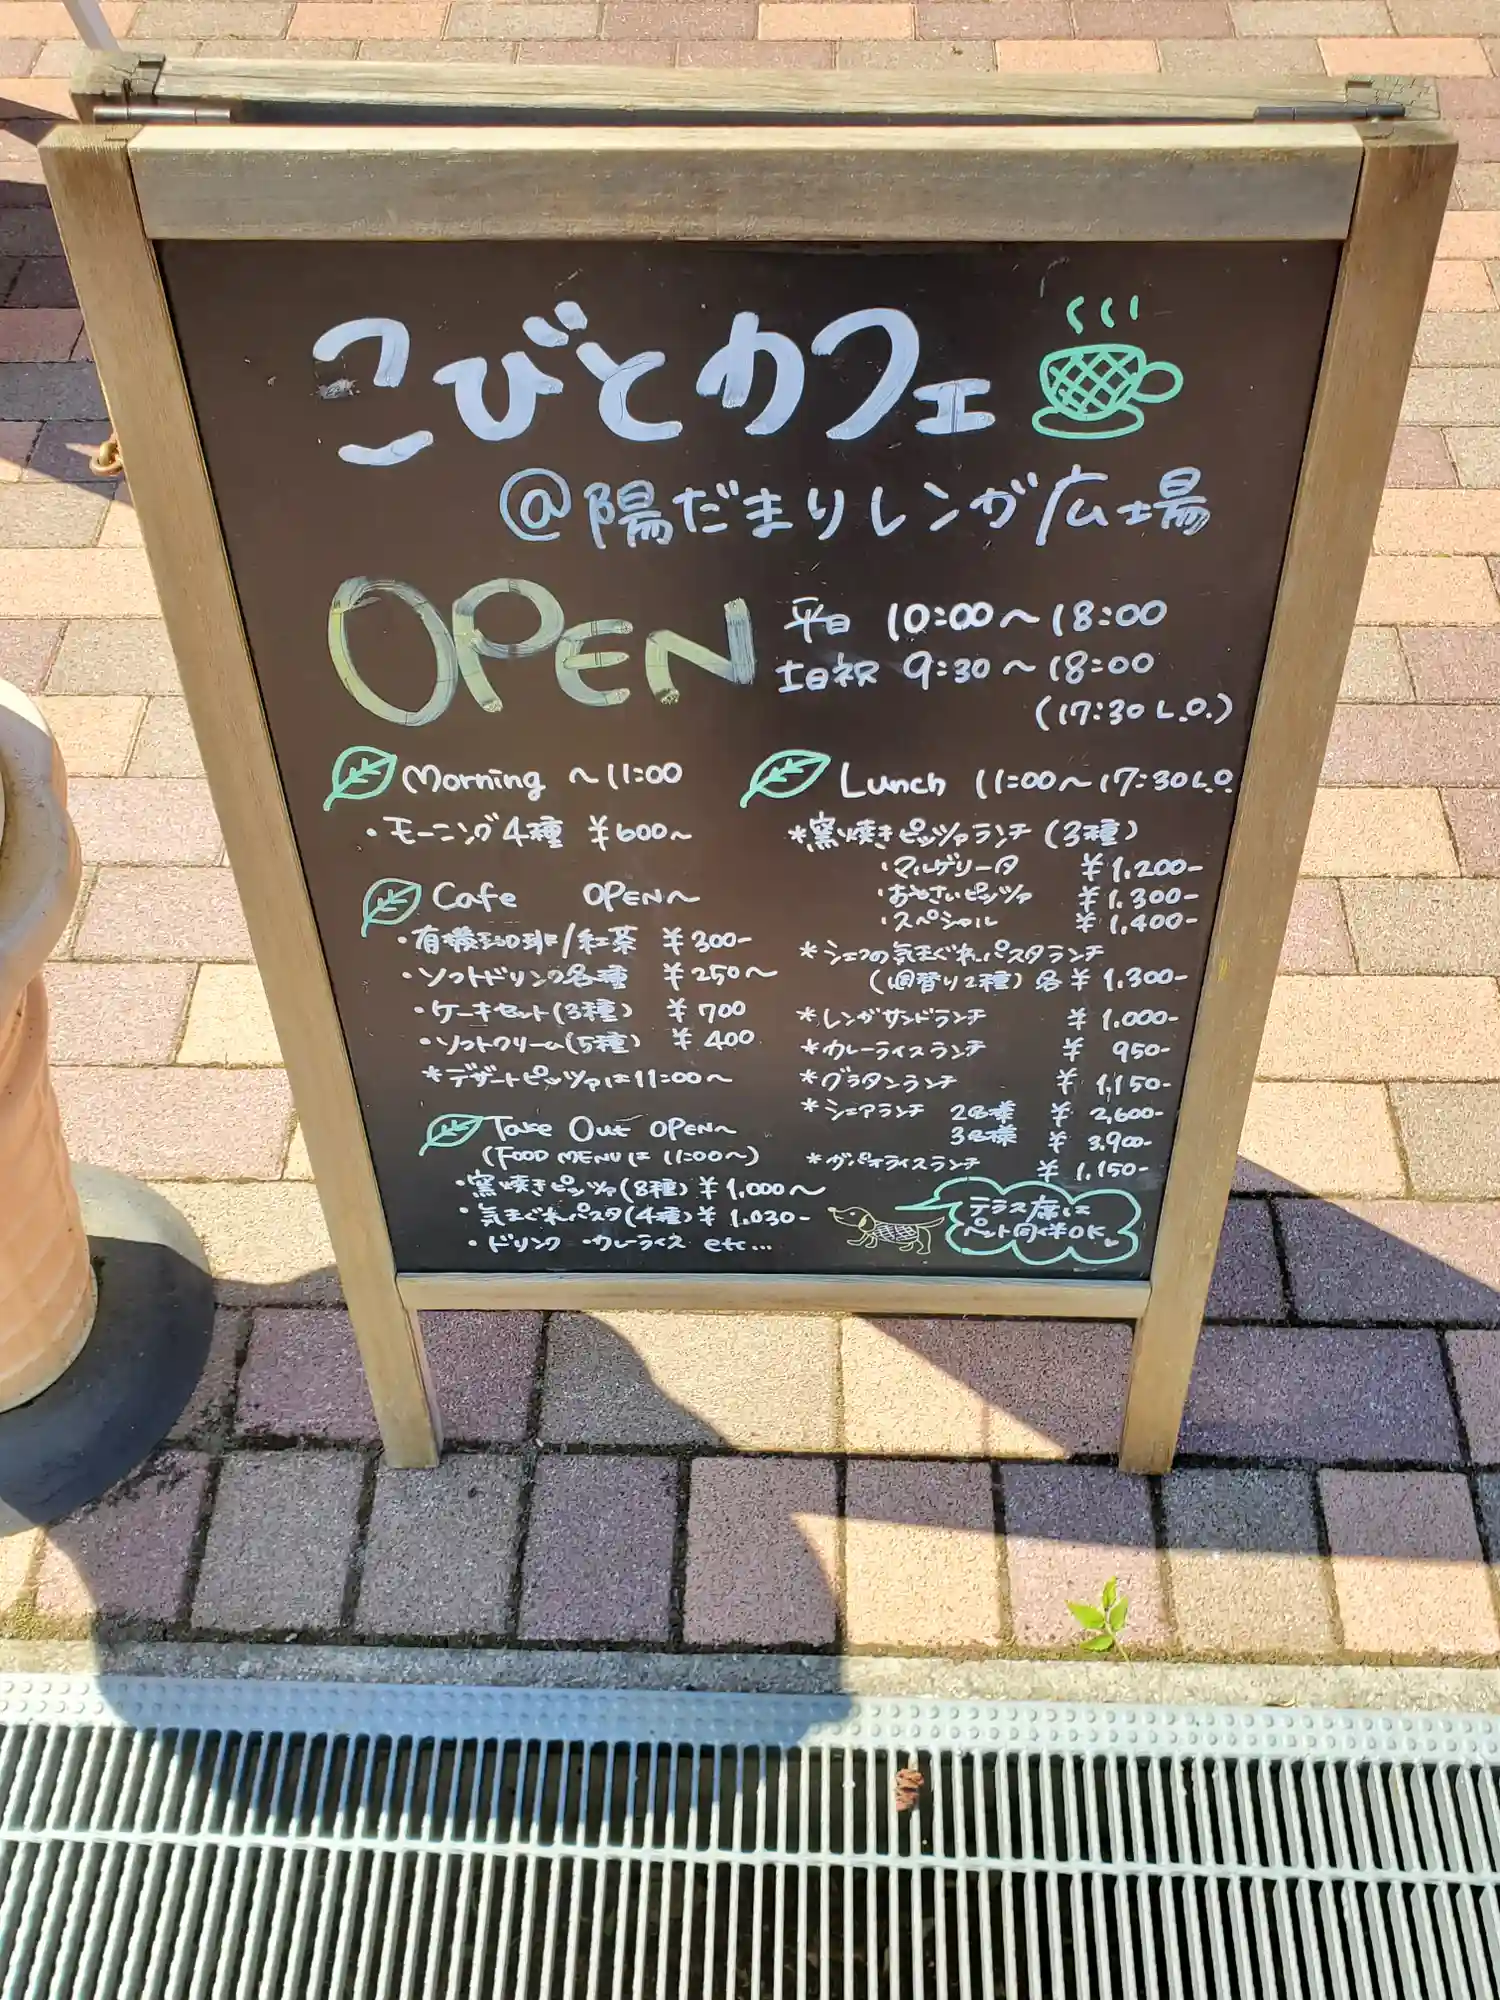 こびとカフェ
@陽だまりレンガ広場
OPEN
平日 10:00～18:00
土日祝 9:30～18:00
(17:30 L.O.)
Morning ～11:00
・モーニング4種 ¥600～
Cafe OPEN～
・有機珈琲/紅茶 ¥300-
・ソフトドリンク各種 ¥250～
・ケーキセット(3種) ¥700
・ソフトクリーム(5種) ¥400
*デザートピッツァは11:00～
Take Out OPEN～
(FOOD MENUは 11:00～)
・窯焼きピッツァ(8種) ¥1,000～
・気まぐれパスタ(4種) ¥1,030-
・ドリンク ・カレーライス etc...
Lunch 11:00～17:30 L.O.
*窯焼きピッツァランチ (3種)
・マルゲリータ ¥1,200-
・おやさいピッツァ ¥1,300-
・スペシャル ¥1,400-
*シェフの気まぐれパスタランチ
(週替り2種) 各 ¥1,300-
*レンガサンドランチ ¥1,000-
*カレーライスランチ ¥950-
*グラタンランチ ¥1,150-
*シェアランチ 2名様 ¥2,600-
3名様 ¥3,900-
*ガパオライスランチ ¥1,150-
テラス席は
ペット同伴OK